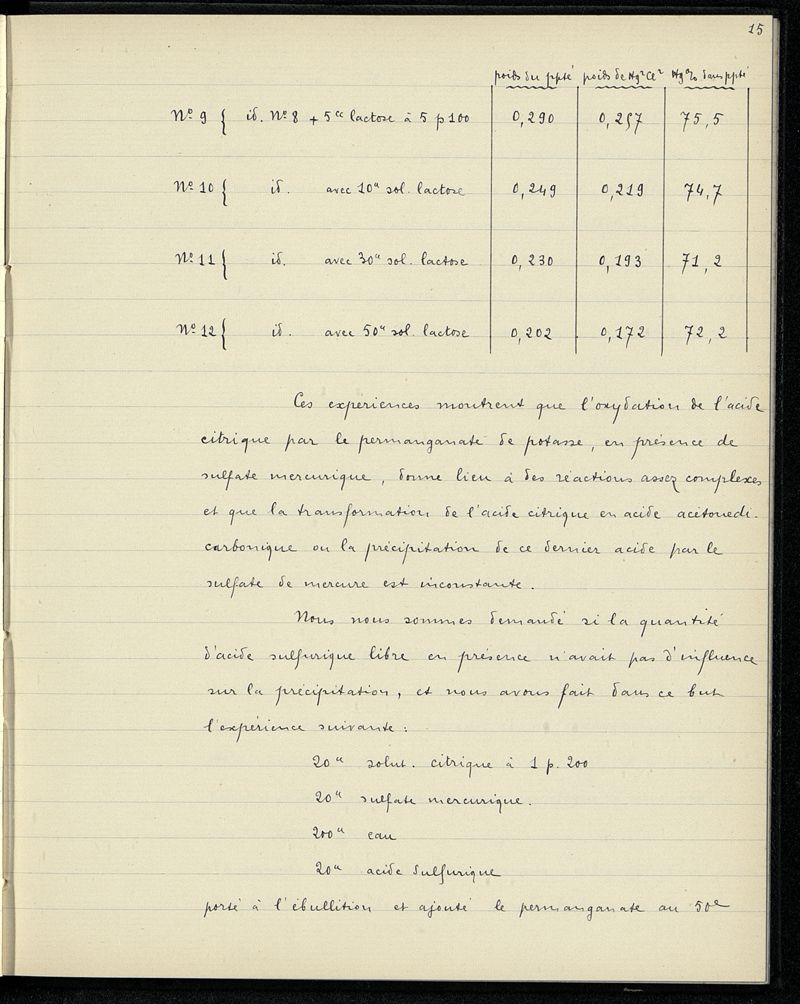 15
poids du ppté poids de Hg²Cl² Hg % dans ppté
Nº 9 { id. Nº 8 + 5cc lactose à 5 p 100 0,290 0,257 75,5
Nº 10 { id. avec 10cc sol. lactose 0,249 0,219 74,7
Nº 11 { id. avec 30cc sol. lactose 0,230 0,193 71,2
Nº 12 { id. avec 50cc sol. lactose 0,202 0,172 72,2
Ces expériences montrent que l'oxydation de l'acide
citrique par le permanganate de potasse, en présence de
sulfate mercurique, donne lieu à des réactions assez complexes
et que la transformation de l'acide citrique en acide acétonedi-
carbonique ou la précipitation de ce dernier acide par le
sulfate de mercure est inconstante.
Nous nous sommes demandé si la quantité
d'acide sulfurique libre en présence n'avait pas d'influence
sur la précipitation, et nous avons fait dans ce but
l'expérience suivante :
20cc solut. citrique à 1 p. 200
20cc sulfate mercurique.
200cc eau
20cc acide sulfurique
porté à l'ébullition et ajouté le permanganate au 50e